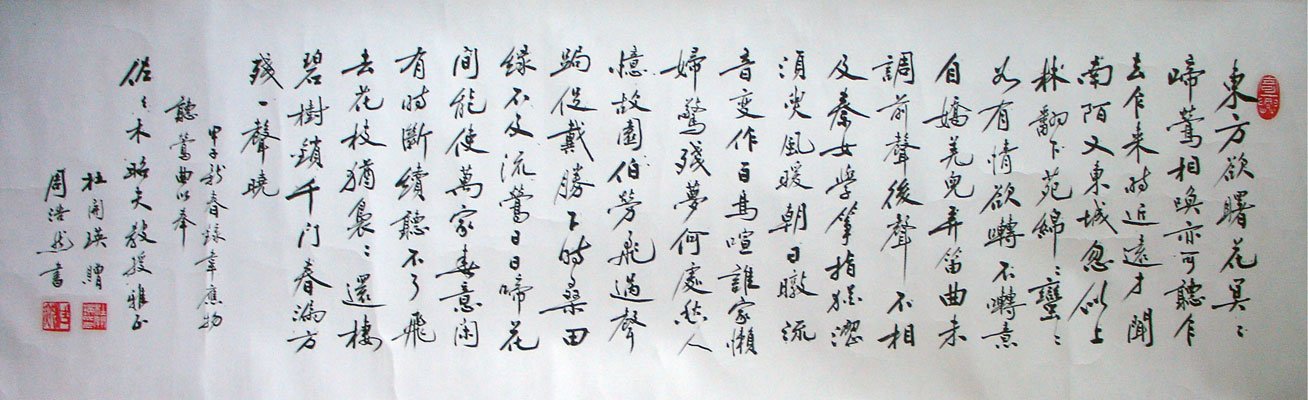 東方欲曙花冥〻
啼鶯相喚亦可聽乍
去乍來時近遠才聞
南陌又東城忽似上
林翻下苑綿〻蠻〻
如有情欲囀不囀意
自嬌羌兒弄笛曲未
調前聲後聲不相
及秦女學箏指猶澀
須臾風暖朝日暾流
音變作百鳥喧誰家懶
婦驚殘夢何處愁人
憶故園伯勞飛過聲
跼促戴勝下時桑田
綠不及流鶯日日啼花
間能使萬家春意閑
有時斷續聽不了飛
去花枝猶裊〻還棲
碧樹鎖千門春漏方
殘一聲曉
甲子新春錄韋應物
聽鶯曲以奉
佐〻木昭夫教授雅正
杜開瑛贈
周浩然書